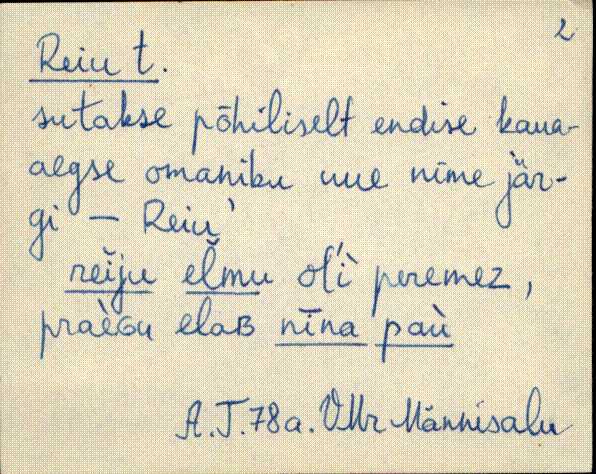 2
Reiu t.
sutakse põhiliselt endise kaua-
aegse omaniku uue nime jär-
gi — Reiu'
reĭju eĺmu oĺ'ì peremez,
praèɢu elaʙ nīna paù
A.T.78a. VMr Männisalu